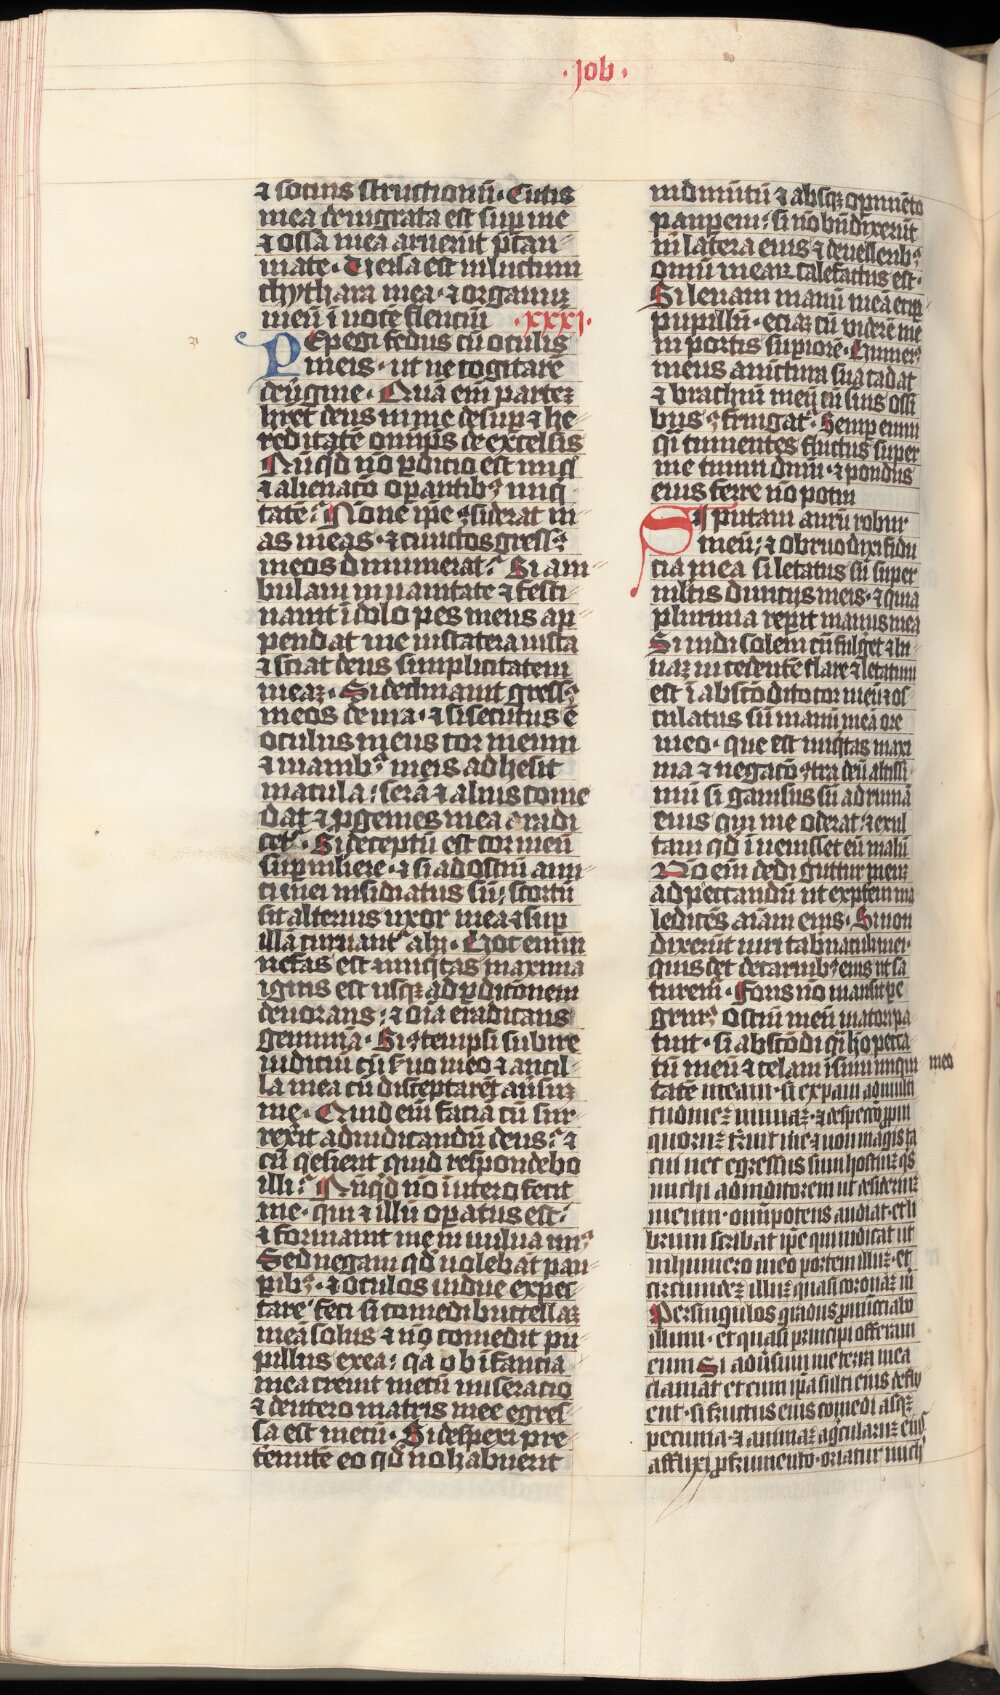 · Job ·
⁊ socius structionū · Cutis
mea denigrata est sup me
⁊ ossa mea aruerūt p̄ cau
mate · Versa est in luctum
chythara mea · ⁊ organuꝫ
meū ī uocē flenciū · xxxi ·
PEpegi fedus cū oculis
meis · ut ne cogitarē
de ūgine · Quā em̄ parteꝫ
hret deus in me desup ⁊ he
reditatē omp̄s de excelsis
Nūqd nō pdicio est iniq̄
⁊ alienac̄o opantibꝰ iniq̄
tatē · Nōne ip̄e ꝯsiderat ui
as meas · ⁊ cunctos gressꝰ
meos dinumerat · Si am
bulaui in uanitate ⁊ festi
nauit ī dolo pes meus ap
pendat me in statera iusta
⁊ sciat deus simplicitatem
meaꝫ · Si declinauit gressꝰ
meos de uia · ⁊ si secutus ē
oculus meus cor meum
⁊ manibꝰ meis adhesit
macula : serā ⁊ alius come
dat ⁊ pgenies mea eradi
cetꝰ · Si deceptū est cor meū
sup muliere · ⁊ si ad ostiū ami
ci mei insidiatus sū : scortū
sit alterius uxor mea ⁊ sup
illā curuantꝰ alij · Hoc enim
nefas est ⁊ iniq̄tas maxima
ignis est usqꝫ ad pdic̄onem
deuorans : ⁊ oīa eradicans
genimīa · Si ꝯtempsi subire
iudiciū cū s̄uo meo ⁊ ancil
la mea cū disceptarēt aduisuꝫ
me · Quid em̄ faciā cū sur
rexit ad iudicandū deus : ⁊
cū q̄sierit quid respondebo
illi · Nūqd nō ī utero fecit
me · qui ⁊ illū opatus est :
⁊ formauit me in uulua unꝰ
Sed negaui qd̄ uolebāt pau
pibꝰ · ⁊ oculos uidue expec
tare feci si comedi buccellaꝫ
meā solus ⁊ nō comedit pu
pillus ex ea : q̄a ab īfantia
mea creuit mecū miseracio
⁊ de utero matris mee egres
sa est mecū · Si despexi pre
tereūtē eo qd̄ nō habuerit
indumtū ⁊ absqꝫ opimēto
paupem : si nō bn̄dixerūt
m̄ latera eius ⁊ de uellerib̄ꝰ
ouiū mearꝫ calefactus est ·
Si leuaui manū meā
pupillū · eciaꝫ cū viderē me
in portis supiorē · Humerꝰ
meus a iunctura sua cadat
⁊ brachiū meū cū suis ossi
bus ꝯfringatꝰ · Semp enim
q̄i tumentes fluctus super
me timui dnm · ⁊ pondus
eius ferre nō potui
SI putaui aurū robur
meū : ⁊ obrizo dixi fidu
cia mea si letatus sū super
ml̄tis diuicijs meis · ⁊ quia
plurima repit manus mea
Si uidi solem cū fulget ⁊ lu
naꝫ incedentē clare ⁊ letatum
est ī abscōdito cor meū ⁊ os
culatus sū manū meā ore
meo · que est iniq̄tas maxi
ma ⁊ negac̄o ꝯtra deū altissi
mū si gauisus sū ad ruinā
eius qui me oderat : ⁊ exul
taui qd̄ ī uenisset eū malū
Nō em̄ dedi guttur meuꝫ
ad peccandū ut expetem̄ ma
ledicēs aīam eius · Si non
dixerūt uiri tabnaculi mei ·
quis det de carnibꝰ eius ut sa
turem̄ · Foris nō mansit pe
grinꝰ ostiū meū uiatori pa
tuit · si abscōdi q̄i ho pecca
tū meū ⁊ celaui ī sinu iniqui meo
tatē meam · si expaui ad multi
tudineꝫ nimiaꝫ · ⁊ despectio ppin
quoruꝫ t̄ruit me ⁊ non magis ta
cui nec egressus sum hostiuꝫ q̄s
michi auditorem ut desideriuꝫ
meum · omīpotens audiat · et li
brum scribat ip̄e qui iudicat ut
in humero meo portem illuꝫ · et
circumdeꝫ illuꝫ quasi coronaꝫ m̄
Per singulos gradus pnūciabo
illum · et quasi principi offeram
eum Si adūsum me terra mea
clamat et cum ip̄a sulci eius defle
ent · si fructus eius comedi absqꝫ
pecunia · ⁊ animaꝫ agricolaruꝫ eius
afflixi p̄ frumento · oriatur mich